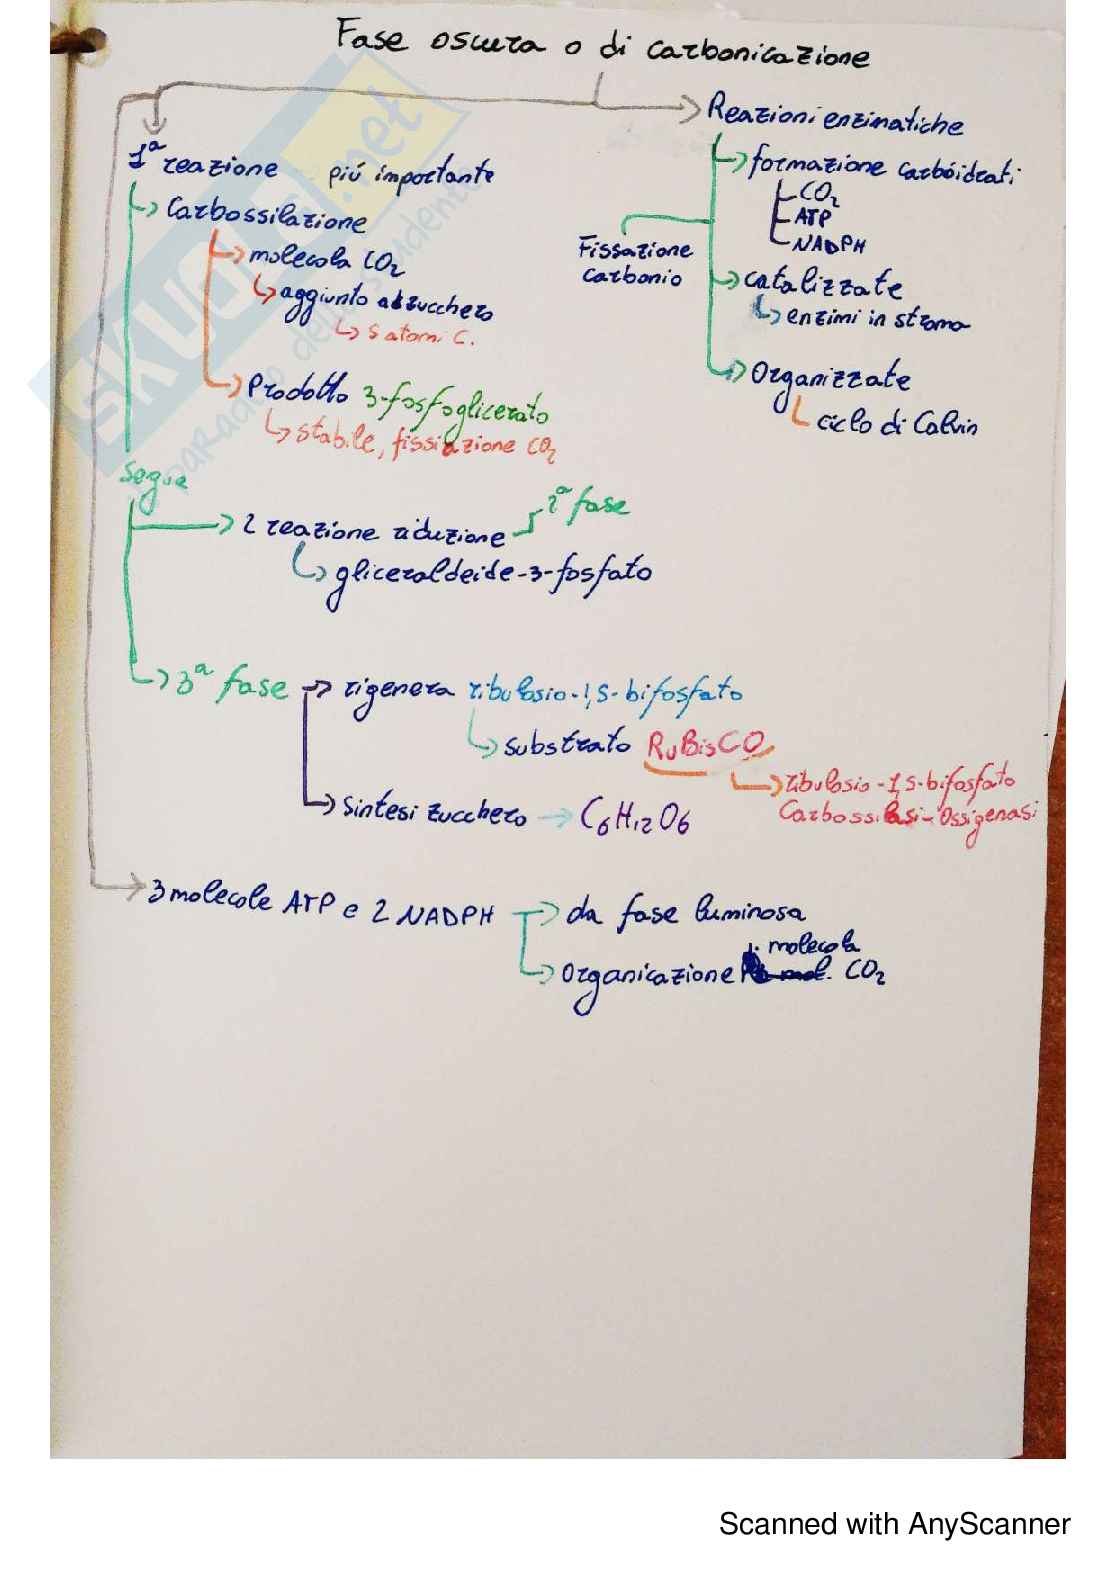 Fase oscura o di carbonicazione
Reazioni enzimatiche
formazione carboidrati
CO2
ATP
NADPH
Fissazione
carbonio
catalizzate
enzimi in stroma
Organizzate
ciclo di Calvin
1a reazione più importante
Carbossilazione
molecola CO2
aggiunto ad zucchero
5 atomi C.
Prodotto 3-fosfoglicerato
stabile, fissiazione CO2
segue
2 reazione riduzione
2a fase
gliceraldeide-3-fosfato
3a fase
rigenera ribulosio-1,5-bifosfato
substrato RuBisCO
ribulosio-1,5-bifosfato
Carbossilasi-Ossigenasi
sintesi zucchero
C6H12O6
3 molecole ATP e 2 NADPH
da fase luminosa
1 molecola
Organicazione CO2
SKUOLA.net
paradiso dello studente
Scanned with AnyScanner